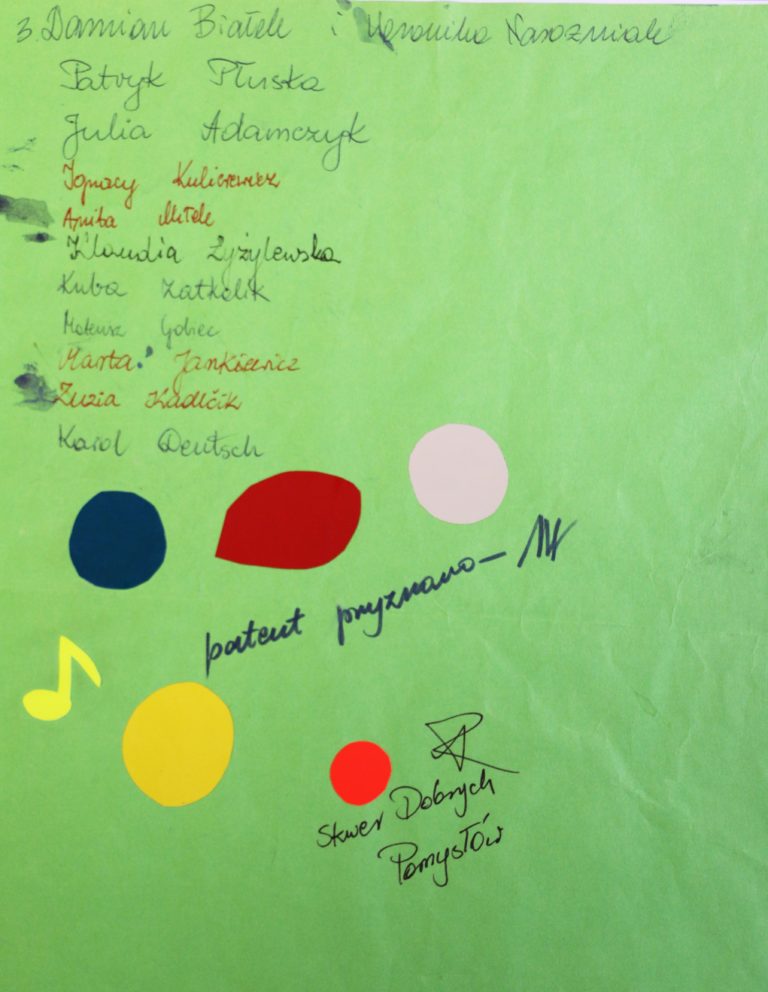 3. Damian Białek i Weronika Narozniak
Patryk Płuska
Julia Adamczyk
Ignacy Kuliciewicz
Anita Mitek
Klaudia Łyżylewska
Kuba Zatkalik
Mateusz
Marta Jankiewicz
Zuzia Kadlčik
Karol Deutsch
patent przyznano –
Skwer Dobrych
Pomysłów